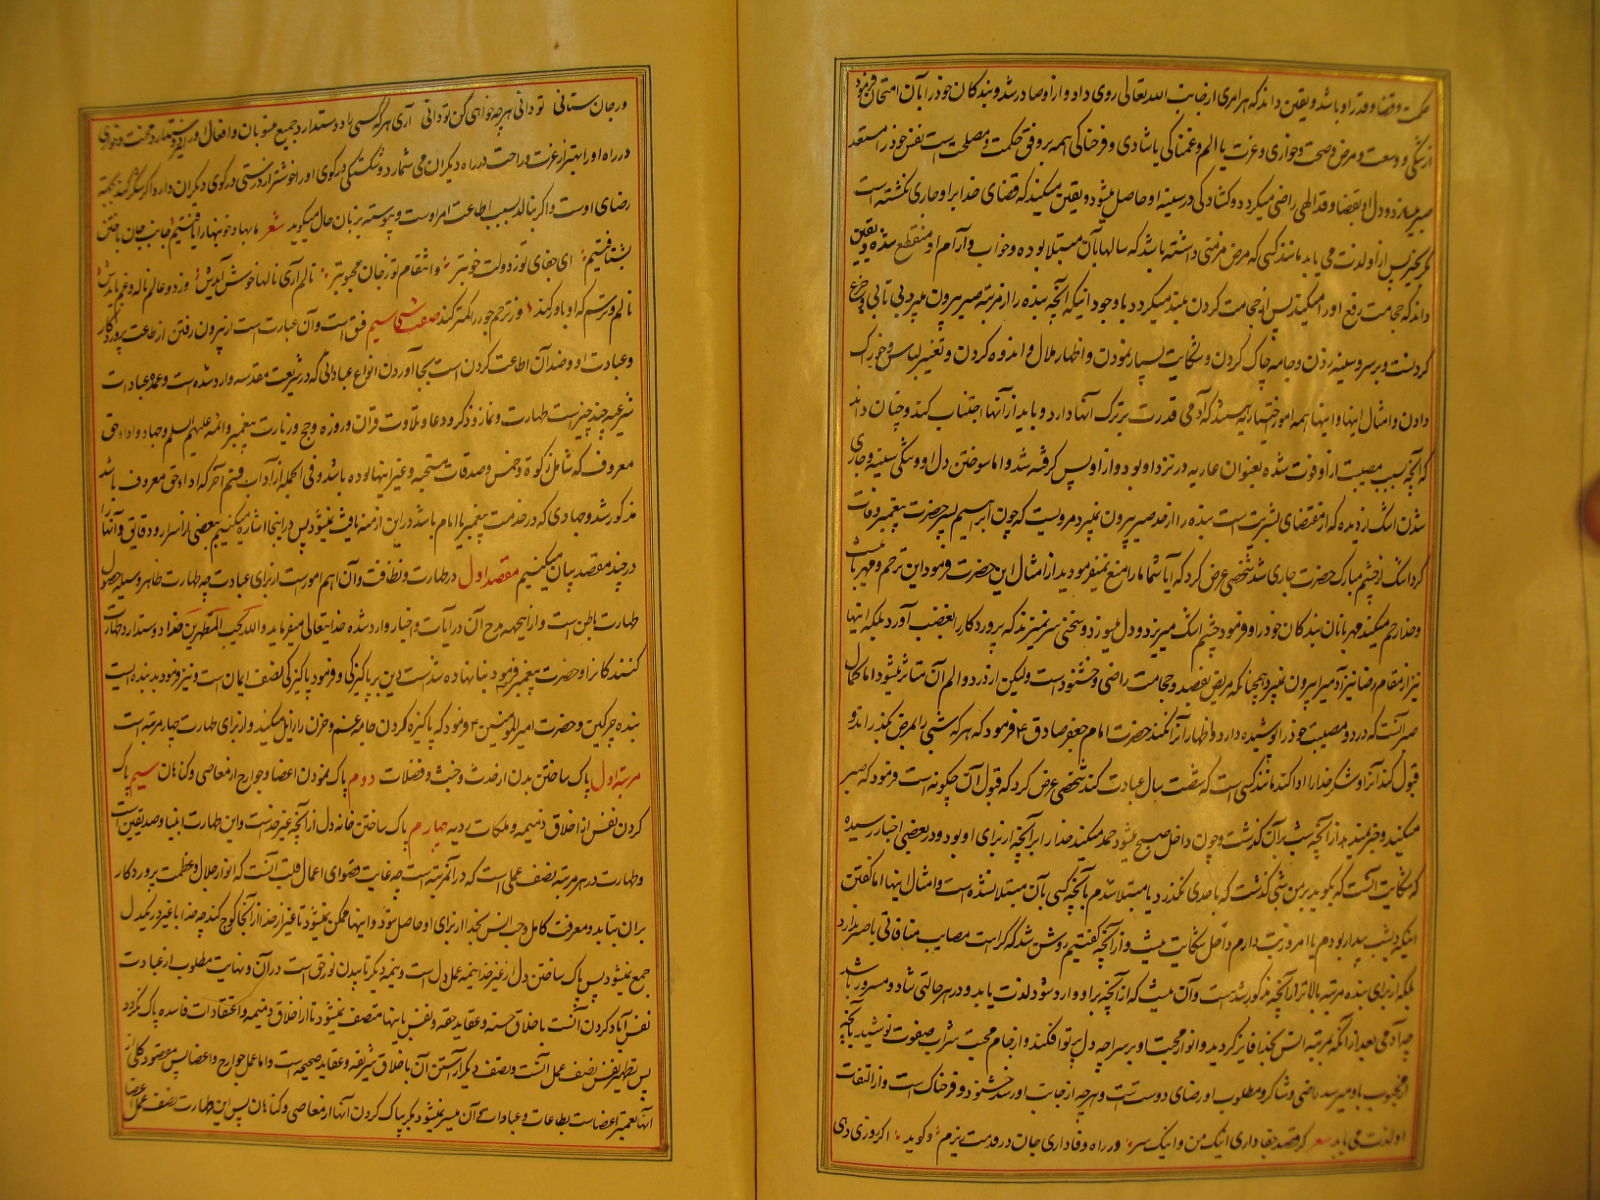 حکمت و قضا و قدر او باشد و یقین داند که هر امری از جانب الله تعالی روی داد و از او صادر شد و بندگان خود را بآن امتحان فرمود
از تنگی و وسعت و مرض و صحت و خواری و عزت یا الم و غمناکی یا شادی و فرحناکی همه بر وفق حکمت و مصلحت است نفس خود را مستعد
صبر میسازد و دل او بقضا و قدر الهی راضی میگردد و گشادگی در سینه او حاصل میشود و یقین میکند که قضای خدا برا و جاری نگشته است
مگر بخیر پس از او لذت می یابد مانند کسی که مرض مزمنی داشته باشد که سالها بآن مبتلا بوده و خواب و آرام او منقطع شده و یقین
داند که حجامت رفع او را میکند پس از حجامت کردن ملتذ میگردد با وجود اینکه آنچه بنده را از مرتبه صبر بیرون میبرد بی تابی و جزع
کردنست و بر سر و سینه زدن و جامه چاک کردن و شکایت بسیار نمودن و اظهار ملال و اندوه کردن و تغییر لباس و خوراک
دادن و امثال اینها و اینها همه امور اختیاریه هستند که آدمی قدرت بر ترک آنها دارد و باید از آنها اجتناب کند و چنان داند
که آنچه بسبب مصیبت از او فوت شده بعنوان عاریه در نزد او بود و از او پس گرفته شد و اما سوختن دل او و تنگی سینه و جاری
شدن اشک از دیده که از مقتضای بشریت است بنده را از حد صبر بیرون نمیبرد مرویست که چون ابراهیم پسر حضرت پیغمبر وفات
کرد اشک از چشم مبارک حضرت جاری شد شخصی عرض کرد که آیا شما ما را منع نمیفرمودید از امثال این حضرت فرمود این ترحم و مهربانیست
و خدا رحم میکند مهربانان بندگان خود را و فرمود چشم اشک میریزد و دل میسوزد و سخنی سر نمیزند که پروردگار را بغضب آورد بلکه اینها
نیز از مقام رضا نیز آدمی را بیرون نمیبرد همچنانکه مریض بفصد و حجامت راضی و خشنود است ولیکن از درد و الم آن متاثر میشود اما کمال
صبر آنست که درد و مصیبت خود را پوشیده دارد و اظهار آن نکند حضرت امام جعفر صادق ع فرمود که هر که شبی را بمرض بگذراند و
قبول کند آنرا و شکر خدا را ادا کند مانند کسی است که شصت سال عبادت کند شخصی عرض کرد که قبول آن چگونه است فرمود که صبر
میکند و خبر نمیدهد از آنچه شب بر آن گذشت و چون داخل صبح میشود حمد میکند خدا را بر آنچه از برای او بود و در بعضی اخبار رسیده
که شکایت آنست که بگوید بر من شبی گذشت که باحدی نگذرد یا مبتلا شدم بآنچه کسی بآن مبتلا نشده است و امثال اینها اما گفتن
اینکه دیشب بیدار بودم یا امروز تب دارم داخل شکایت نیست و از آنچه گفتیم روشن شد که کراهت مصایب منافاتی با صبر ندارد
بلکه از برای بنده مرتبه بالاتر از آنچه مذکور شد هست و آن نیست که از آنچه بر او وارد شود لذت یابد و در هر حالتی شاد و مسرور باشد
چه آدمی بعد از آنکه بمرتبه انس بخدا فایز گردید و انوار محبت او بر ساحه دل پرتو افکند و از جام محبت شراب صفوت نوشید بآنچه
از محبوب باو میرسد راضی و شاکر و مطلوب او رضای دوست است و هر چه از جانب او رسد خشنود و فرحناک است و از التفات
او لذت می یابد شعر گر قصد جفا داری اینک من و اینک سر و ور راه وفا داری جان در قدمت ریزم و گوید اگر روزی دهی
ور جان ستانی تو دانی هر چه خواهی کن تو دانی آری هر که کسی را دوست دارد جمیع منسوبان و افعال او را نیز دوست دارد محنت و خواری
در راه او را بهتر از عزت و راحت در راه دیگران می شمارد و شکستگی در کوی او را خوشتر از درستی در کوی دیگران دارد اگر شکر کند بجهة
رضای اوست و اگر بنالد بسبب اطاعت امر اوست و پیوسته بزبان حال میگوید شعر ما بها و خونبها را یافتیم جانب جان باختن
بشتافتیم ای جفای تو ز دولت خوبتر و انتقام تو ز جان محبوبتر نالم آری نالها خوش آیدش وز دو عالم ناله و غم بایدش
نالم و ترسم که او باور کند وز ترحم جور را کمتر کند صفت سی و سیم فسق است و آن عبارت است از بیرون رفتن از طاعت پروردگار
و عبادت او و ضد آن اطاعت کردن است بجا آوردن انواع عباداتی که در شریعت مقدسه وارد شده است و عمده عبادات
شرعیه چند چیز است طهارت و نماز و ذکر و دعا و تلاوت قرآن و روزه و حج و زیارت پیغمبر و ائمه علیهم السلم و جهاد و اداء حق
معروف که شامل زکوة و خمس و صدقات مستحبه و غیر اینها بوده باشد و فی الجمله از آداب قسم آخر که اداء حق معروف باشد
مذکور شد و جهادی که در خدمت پیغمبر یا امام باشد در این ازمنه یافت نمیشود پس در اینجا اشاره میکنیم ببعضی از اسرار و دقایق و آنها را
در چند مقصد بیان میکنیم مقصد اول در طهارت و نظافت و آن اهم امور است از برای عبادت چه طهارت ظاهر وسیله حصول
طهارت باطن است و از اینجهة مدح آن در آیات و اخبار وارد شده خدایتعالی میفرماید والله یحب المطهرین خدا دوست دارد طهارت
کنندگانرا و حضرت پیغمبر فرمود بنا نهاده شده است دین بر پاکیزگی و فرمود پاکیزگی نصف ایمان است و نیز فرمود بد بنده ایست
بنده چرکین و حضرت امیرالمومنین ع فرمود که پاکیزه کردن جامه غم و حزن را زایل میکند و از برای طهارت چهار مرتبه است
مرتبه اول پاک ساختن بدن از حدث و خبث و فضلات دوم پاک نمودن اعضا و جوارح از معاصی و گناهان سیم پاک
کردن نفس از اخلاق ذمیمه و ملکات ردیه چهارم پاک ساختن خانه دل از آنچه غیر خداست و این طهارت انبیا و صدیقین است
و طهارت در هر مرتبه نصف عملی است که در آنمرتبه است چه غایت قصوای اعمال قلب آنست که انوار جلال و عظمت پروردگار
بر آن بتابد و معرفت کامل و حب و انس بخدا از برای او حاصل شود و اینها ممکن نمیشود تا غیر از خدا از آنجا کوچ کند چه خدا با غیر در یکدل
جمع نمیشود پس پاک ساختن دل از غیر خدا نیمه عمل دل است و نیمه دیگر تابیدن نور حق است در آن و نهایت مطلوب از عبادت
نفس آباد کردن آنست باخلاق حسنه و عقاید حقه و نفس باینها متصف نمیشود تا از اخلاق ذمیمه و اعتقادات فاسده پاک نگردد
پس تطهیر نفس نصف عمل آنست و نصف دیگر آراستن آن باخلاق شریفه و عقاید صحیحه است و اما عمل جوارح و اعضا پس مقصود کلی از
آنها تعمیر اعضاست بطاعات و عبادات و آن میسر نمیشود مگر بپاک کردن آنها از معاصی و گناهان پس این طهارت نصف عمل اعضا